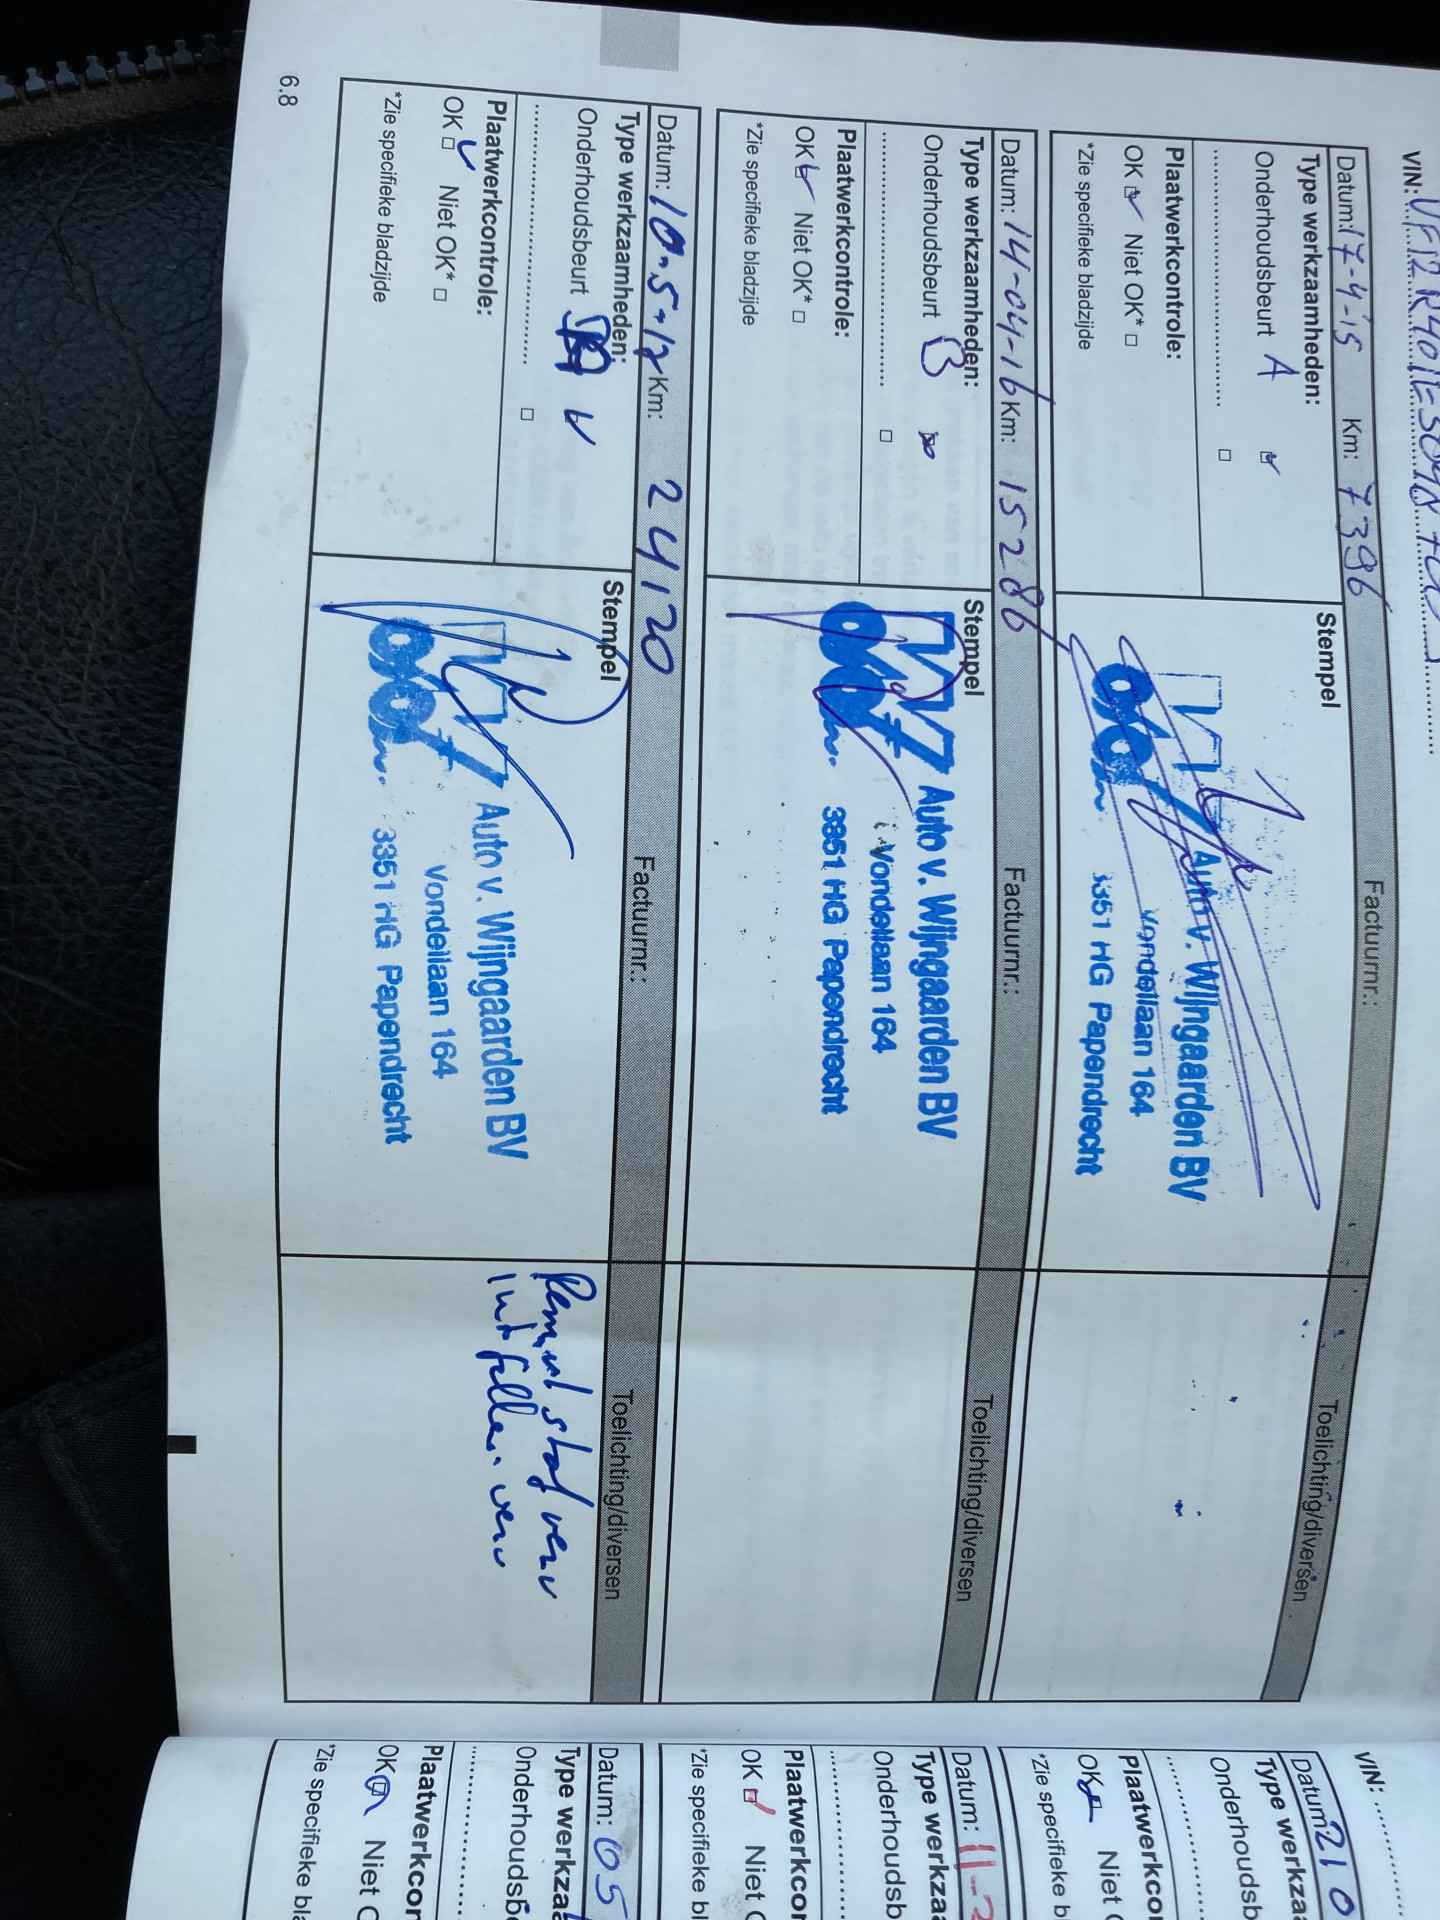 VIN:
Datum: 17-4-15 Km: 7396 Factuurnr.: Toelichting/diversen
Type werkzaamheden:
Onderhoudsbeurt A
Plaatwerkcontrole:
OK Niet OK*
*Zie specifieke bladzijde
Stempel
Auto v. Wijngaarden BV
Vondellaan 164
3351 HG Papendrecht
Datum: 14-04-16 Km: 15286 Factuurnr.: Toelichting/diversen
Type werkzaamheden:
Onderhoudsbeurt B
Plaatwerkcontrole:
OK Niet OK*
*Zie specifieke bladzijde
Stempel
Auto v. Wijngaarden BV
Vondellaan 164
3351 HG Papendrecht
Datum: 10-5-17 Km: 24120 Factuurnr.: Toelichting/diversen
Type werkzaamheden:
Onderhoudsbeurt
Plaatwerkcontrole:
OK Niet OK*
*Zie specifieke bladzijde
Stempel
Auto v. Wijngaarden BV
Vondellaan 164
3351 HG Papendrecht
verv
verv
6.8
VIN:
Datum 210
Type werkza
Onderhoudsb
Plaatwerkcor
OK Niet
*Zie specifieke bl
Datum: 11-2
Type werkza
Onderhoudsb
Plaatwerkcon
OK Niet
*Zie specifieke bl
Datum: 05
Type werkza
Onderhoudsb
Plaatwerkcor
OK Niet
*Zie specifieke bla